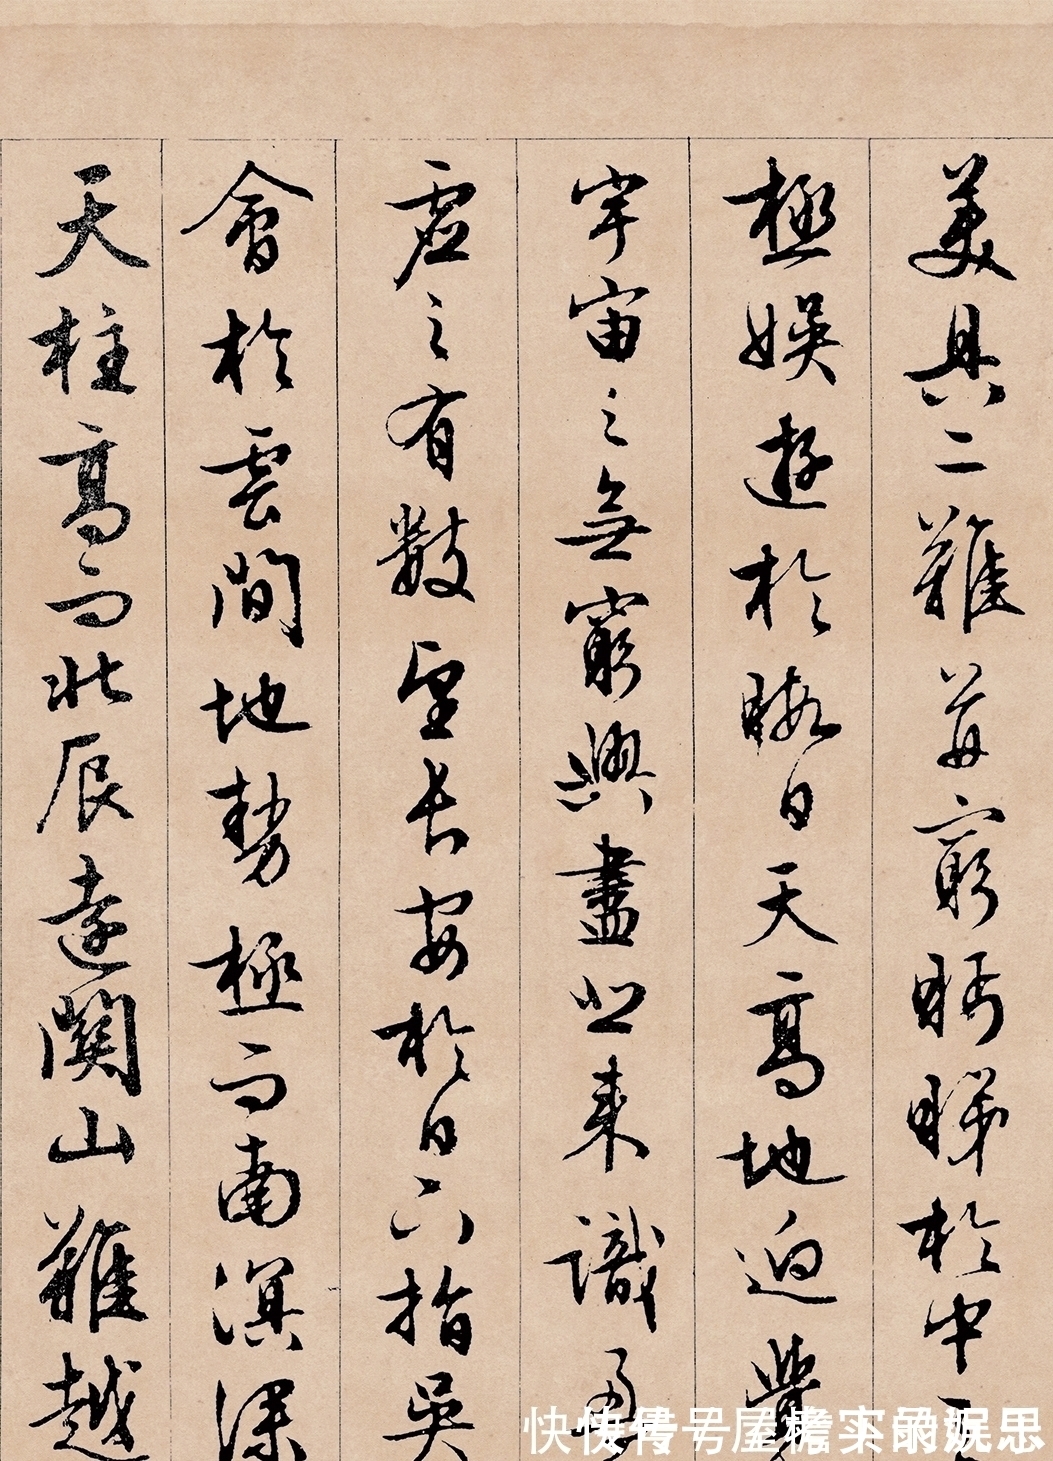 美具二難并窮眄睇於中
極娛遊於暇日天高地迥覺
宇宙之無窮興盡悲來識盈
虛之有數望長安於日下指吳
會於雲間地勢極而南溟深
天柱高而北辰遠關山難越